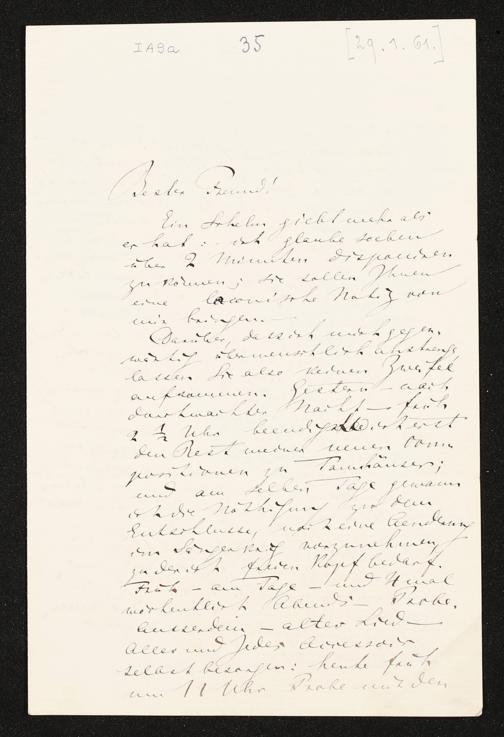 IA9a 35 [29.1.61.]
Bester Freund!
Ein Schelm giebt mehr als
er hat: ich glaube soeben
über 2 Minuten disponiren
zu können; sie sollen Ihnen
eine laconische Notiz von
mir bringen. —
Darüber, dass ich mich gegen-
wärtig übermenschlich anstrenge
lassen Sie also keinen Zweifel
aufkommen. Gestern — nach
durchwachter Nacht — früh
2 ½ Uhr beendigte ich erst
den Rest meiner neuen Com-
positionen zu Tannhäuser;
und am selben Tage gewann
ich die Nöthigung zu dem
Entschlusse, noch eine Aenderung
im Sängerkrieg vorzunehmen,
zu der ich freien Kopf bedarf.
Früh — am Tage — und 4 mal
wöchentlich Abends — Probe.
Ausserdem — altes Lied —
Alles und jedes Accessoir
selbst besorgen: heute früh
um 11 Uhr Probe mit den